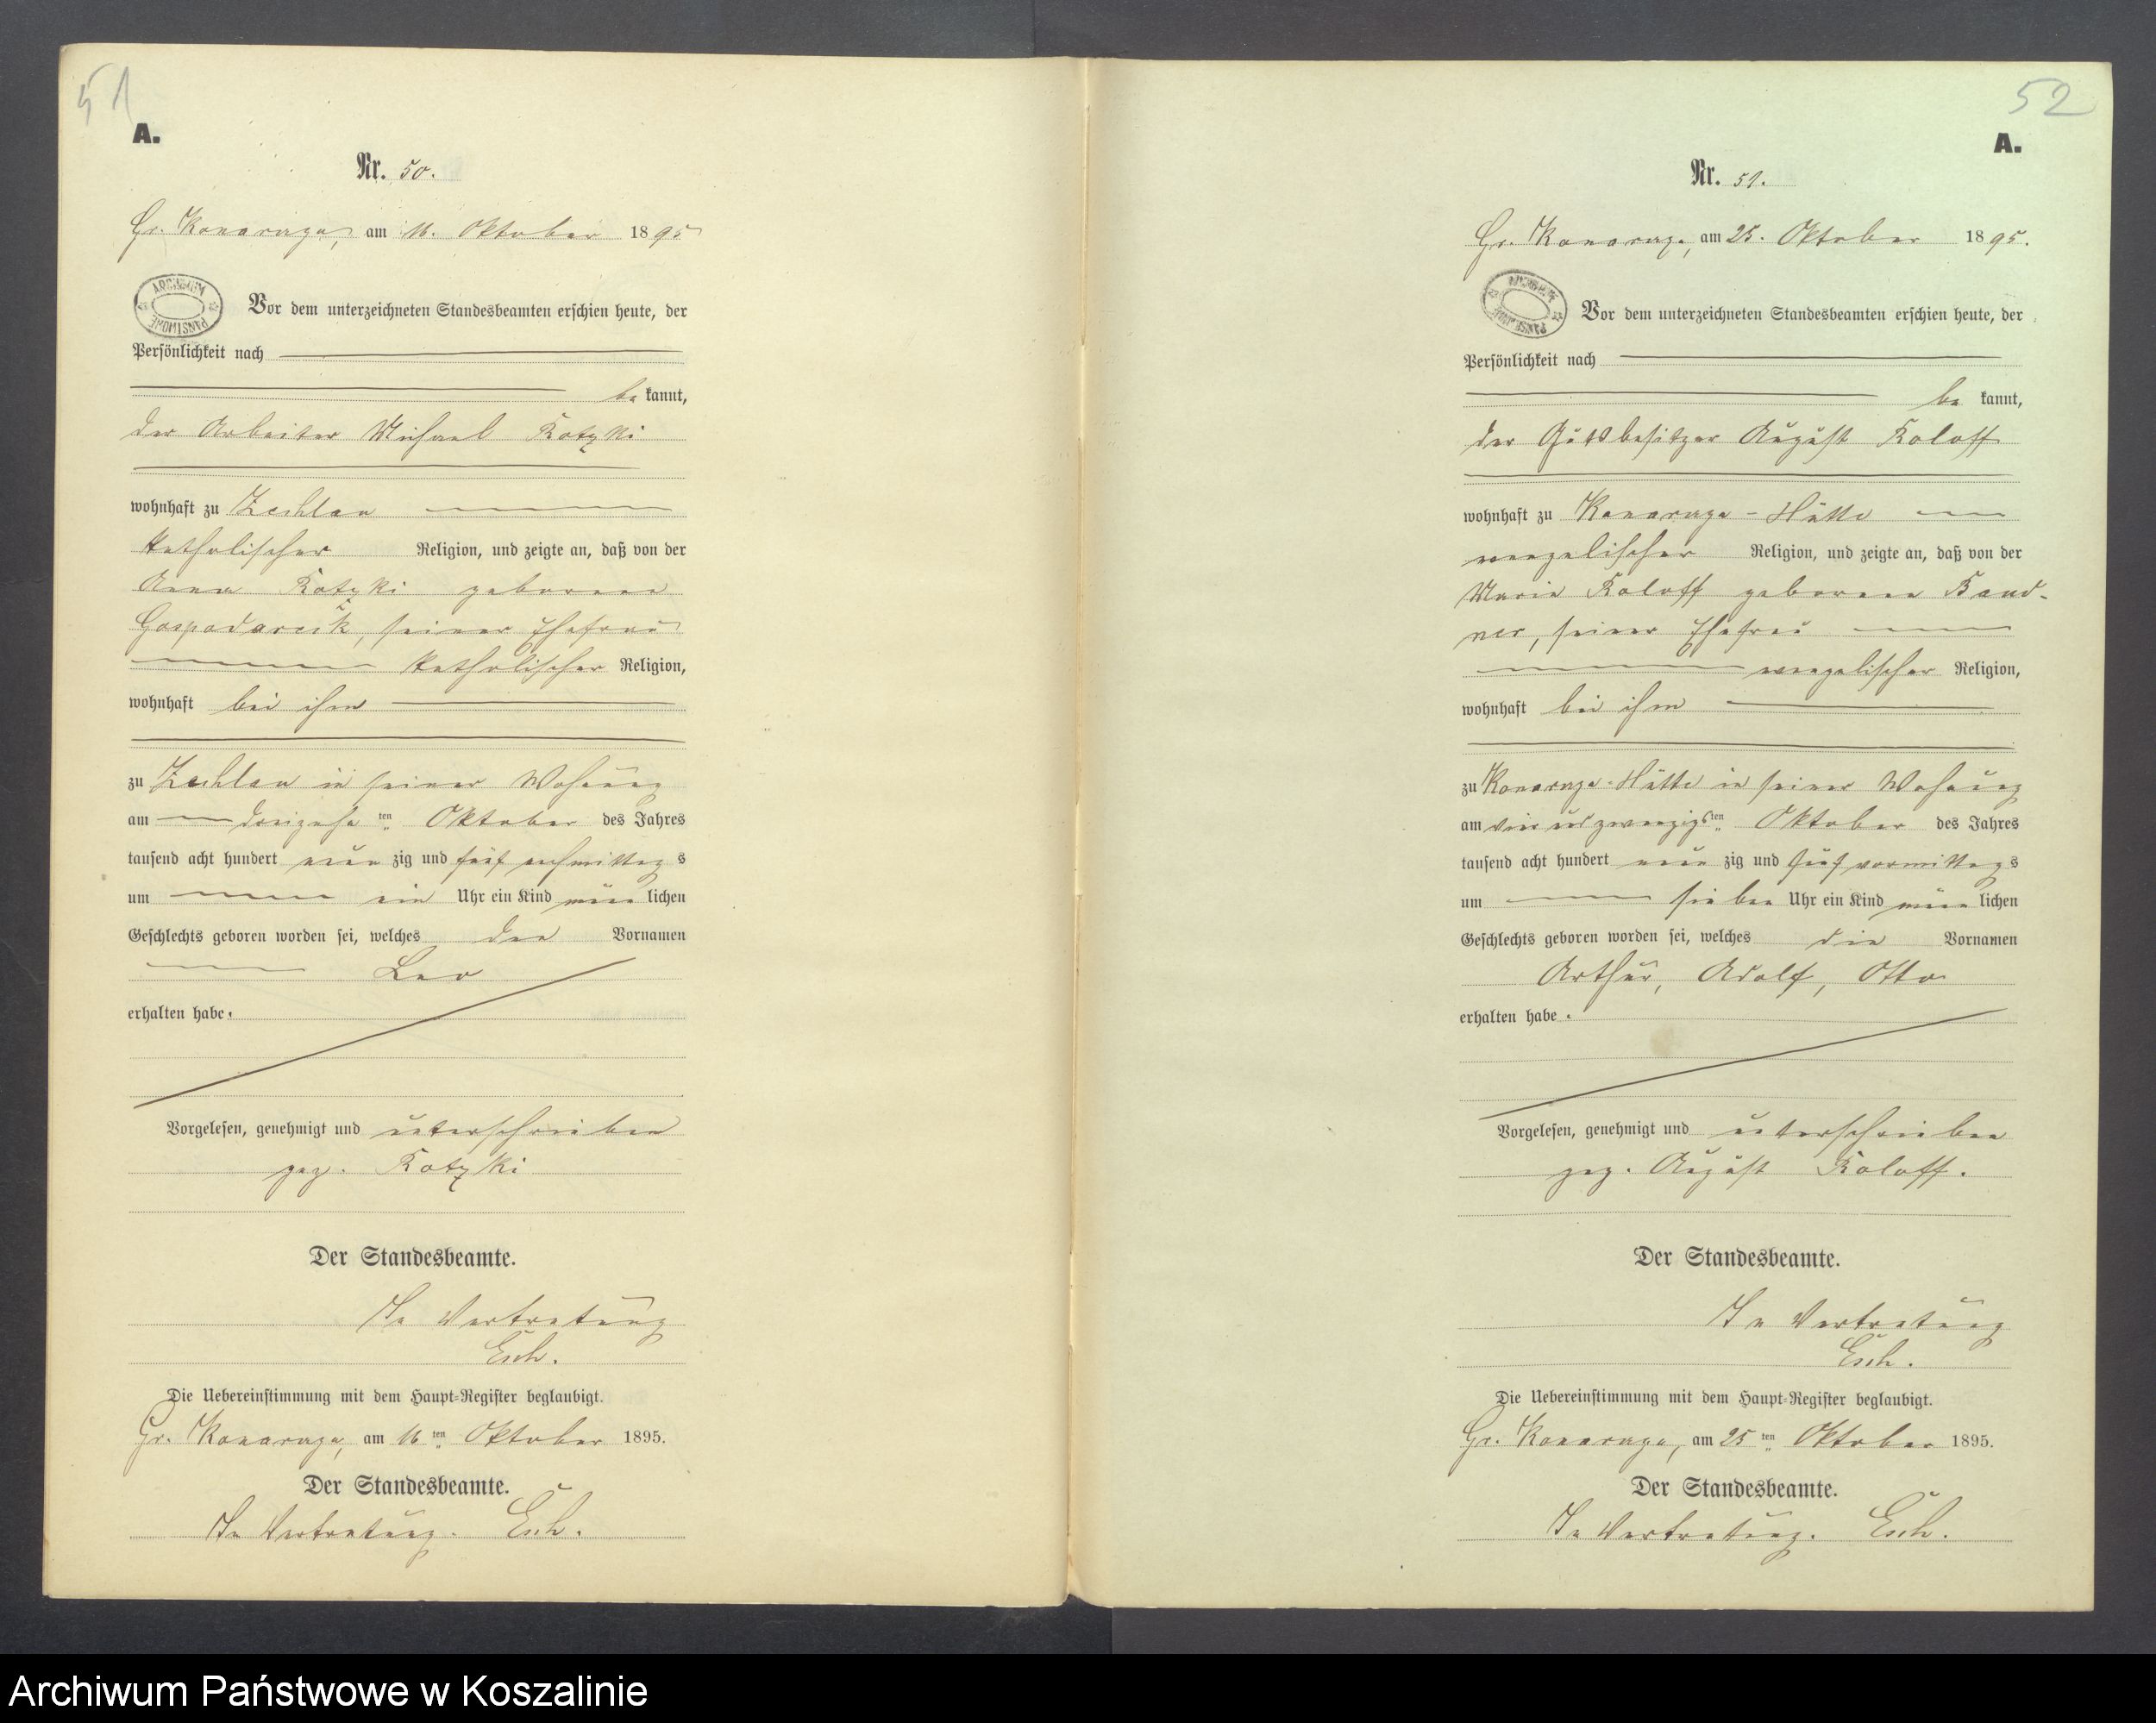 51
A.
Nr. 50.
Gr. Konarczyn, am 16. Oktober 1895
ARCHIWUM PAŃSTWOWE
Vor dem unterzeichneten Standesbeamten erschien heute, der
Persönlichkeit nach
be kannt,
der Arbeiter Michael Kotzki
wohnhaft zu Zechlau
katholischer Religion, und zeigte an, daß von der
Anna Kotzki geborene
Gospodarcik, seiner Ehefrau
katholischer Religion,
wohnhaft bei ihm
zu Zechlau in seiner Wohnung
am dreizehn ten Oktober des Jahres
tausend acht hundert neun zig und fünf nachmittag s
um ein Uhr ein Kind männ lichen
Geschlechts geboren worden sei, welches den Vornamen
Leo
erhalten habe.
Vorgelesen, genehmigt und unterschrieben
gez. Kotzki
Der Standesbeamte.
In Vertretung
Esch.
Die Uebereinstimmung mit dem Haupt-Register beglaubigt.
Gr. am 16 ten Oktober 1895.
Der Standesbeamte.
In Vertretung. Esch.
52
A.
Nr. 51.
Gr. am 25. Oktober 1895.
ARCHIWUM PAŃSTWOWE
Vor dem unterzeichneten Standesbeamten erschien heute, der
Persönlichkeit nach
be kannt,
der Gutsbesitzer August Koloff
wohnhaft zu Hütte
evangelischer Religion, und zeigte an, daß von der
Marie Koloff geborene Band-
ner, seiner Ehefrau
evangelischer Religion,
wohnhaft bei ihm
zu Hütte in seiner Wohnung
am vierundzwanzigs ten Oktober des Jahres
tausend acht hundert neun zig und fünf vormittag s
um sieben Uhr ein Kind männ lichen
Geschlechts geboren worden sei, welches die Vornamen
Arthur, Adolf, Otto
erhalten habe.
Vorgelesen, genehmigt und unterschrieben
gez. August Koloff.
Der Standesbeamte.
In Vertretung
Esch.
Die Uebereinstimmung mit dem Haupt-Register beglaubigt.
Gr. am 25 ten Oktober 1895.
Der Standesbeamte.
In Vertretung. Esch.
Archiwum Państwowe w Koszalinie